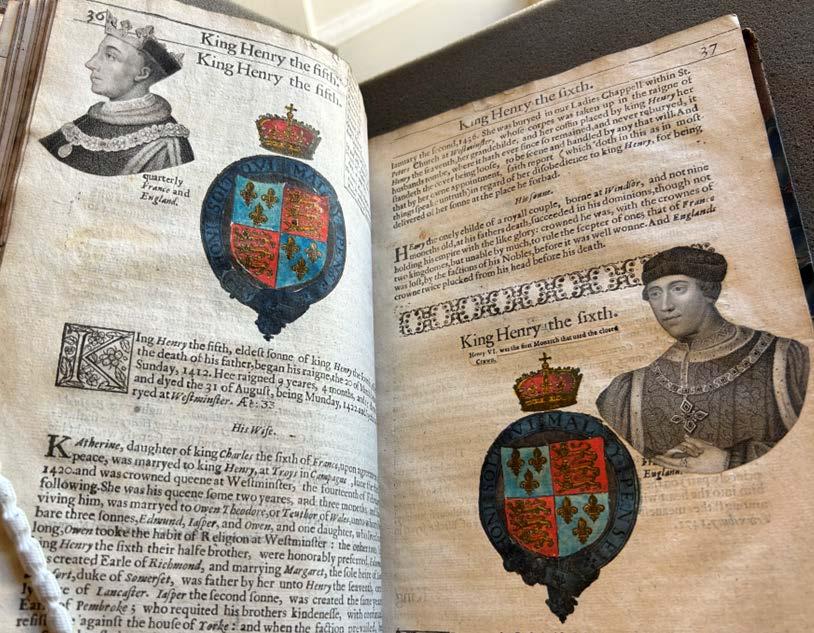 36
King Henry the fifth.
King Henry the fifth.
quarterly
France and
England.
HONI SOIT QVI MAL Y PENSE
King Henry the fifth, eldest sonne of king Henry the
the death of his father, began his raigne, the 20 of
Sunday, 1412. Hee raigned 9 yeares, 4 months, and
and dyed the 31 of August, being Munday, 1422
ryed at Westminster. Æt: 33
His Wife.
KAtherine, daughter of king Charles the sixth of France, upon
peace, was marryed to king Henry, at Troys in Campagne,
1420. and was crowned queene at Westminster, the fourteenth of
following. She was his queene some two yeares, and three months, and
viving him, was marryed to Owen Theodore, or Teuthor of Wales,
bare three sonnes, Edmund, Iasper, and Owen, and one daughter, who
long, Owen tooke the habit of Religion at Westminster: the other
ing Henry the sixth their halfe brother, were honorably preferred,
s created Earle of Richmond, and marrying Margaret, the sole heire of
fort, duke of Somerset, was father by her unto Henry the seaventh,
ly of Lancaster. Iasper the second sonne, was created the same yeare
Earle of Pembroke; who requited his brothers kindenesse, with
resist against the house of Yorke: and when the faction prevailed,
37
King Henry the sixth.
Ianuary the second, 1436. She was buryed in our Ladies Chappell within St.
Peters Church at Westminster, whose corpes was taken up in the raigne of
Henry the seaventh, her grandchilde, and her coffin placed by king Henry her
husbands tombe, where it hath ever since so remained, and never reburyed, it
standeth the cover being loose, to be seene and handled by any that will. And
that by her owne appointment, saith report (which doth in this as in most
things speake untruth) in regard of her disobedience to king Henry, for being
delivered of her sonne at the place he forbad.
His sonne.
HEnry the onely childe of a royall couple, borne at Windsor, and not nine
months old, at his fathers death, succeeded in his dominions, though not
holding his empire with the like glory: crowned he was, with the crownes of
two kingdomes, but unable by much, to rule the scepter of ones that of France
was lost, by the factions of his Nobles, before it was well wonne. And Englands
crowne twice plucked from his head before his death.
King Henry the sixth.
Henry VI. was the first Monarch that used the closed
Crown.
England.
HONI SOIT QVI MAL Y PENSE